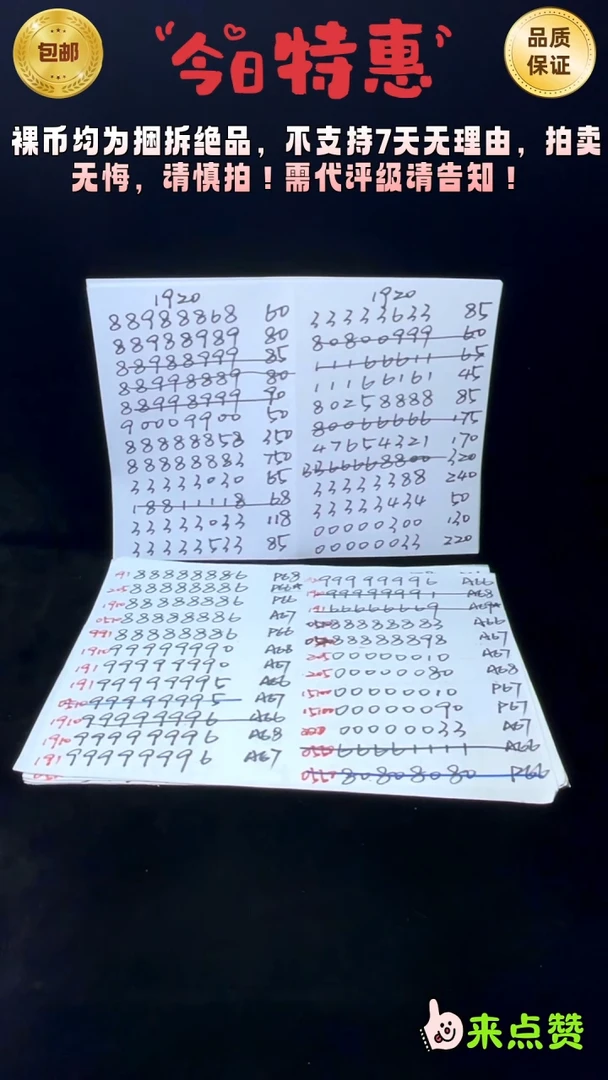 包邮
今日特惠
品质
保证
裸币均为捆拆绝品，不支持7天无理由，拍卖
无悔，请慎拍！需代评级请告知！
1920
88988868 60
88988989 80
88988999 85
88998889 80
88998999 90
90009900 50
88888858 350
88888883 750
33333030 65
18811118 68
33333033 118
33333533 85
1920
33333633 85
80800999 60
11166611 65
11166161 45
80258888 85
80066666 175
47654321 170
320
33333388 240
33333434 50
00000300 130
00000033 220
191 88888886 P68
205 88888886
1910 88888886 P66
0510 88888886 A67
991 88888886 P66
1910 99999990 A68
191 99999990 A67
191 99999995 A66
0510 99999995 A67
1910 99999996 A66
1910 99999996 A68
191 99999996 A67
99999996 A66
99999991 A68
191 66666669
88888883 A66
88888898 A67
205 00000010 A67
205 00000080 A68
1510 00000010 P67
1510 00000090 P67
00000033 A67
0510 66661111 A66
80808080 P66
来点赞